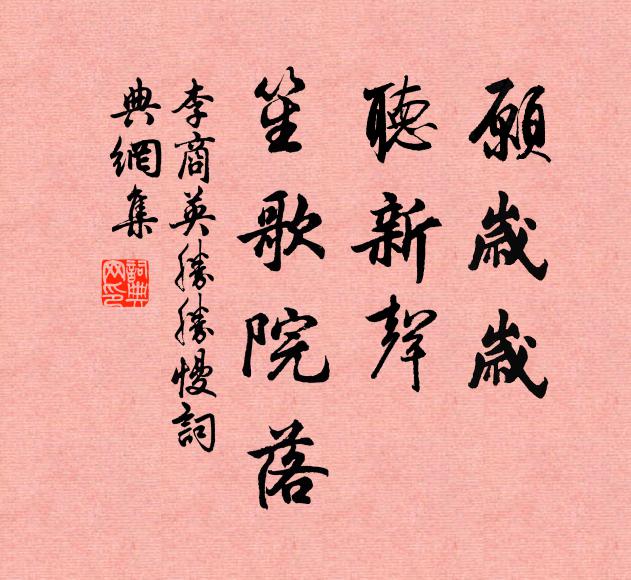 願歲歲
聽新聲
笙歌院落
李商英勝勝慢詞
典網集
詞典網印